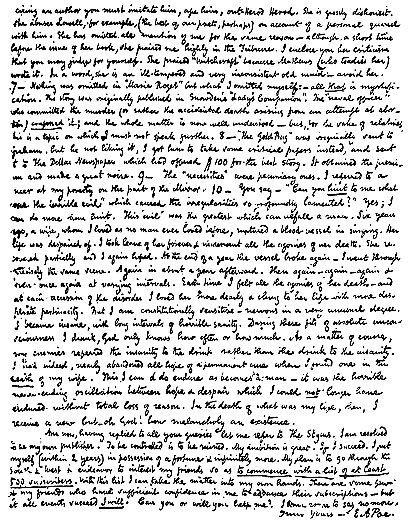 ciring an author you must imitate him, ape him, out-Herod Herod. She is grossly dishonest.
She abuses Lowell, for example, (the best of our poets, perhaps) on account of a personal quarrel
with him. She has omitted all mention of me for the same reason — although, a short time
before the issue of her book, she praised me highly in the Tribune. I enclose you her criticism
that you may judge for yourself. She praised "Witchcraft" because Mathews (who toadies her)
wrote it. In a word, she is an ill-tempored and very inconsistent old maid — avoid her.
7 — Nothing was omitted in "Marie Roget" but what I omitted myself: — all that is mystifi-
cation. The story was originally published in Snowden's "Lady's Companion". The "naval officer"
who committed the murder (or rather the accidental death arising from an attempt at abor-
tion) confessed it; and the whole matter is now well understood — but, for the sake of relatives,
this is a topic on which I must not speak further. 8 — "The Gold Bug" was originally sent to
Graham, but he not liking it, I got him to take some critical papers instead, and sent
it to The Dollar Newspaper which had offered $100 for the best story. It obtained the premi-
um and made a great noise. 9 — The "necessities" were pecuniary ones. I referred to a
sneer at my poverty on the part of the Mirror. 10 — You say — "Can you hint to me what
was the terrible evil" which caused the irregularities so profoundly lamented?" Yes; I
can do more than hint. This "evil" was the greatest which can befall a man. Six years
ago, a wife, whom I loved as no man ever loved before, ruptured a blood-vessel in singing. Her
life was despaired of. I took leave of her forever & underwent all the agonies of her death. She re-
covered partially and I again hoped. At the end of a year the vessel broke again — I went through
precisely the same scene. Again in about a year afterward. Then again — again — again &
even once again at varying intervals. Each time I felt all the agonies of her death — and
at each accession of the disorder I loved her more dearly & clung to her life with more des-
perate pertinacity. But I am constitutionally sensitive — nervous in a very unusual degree.
I became insane, with long intervals of horrible sanity. During these fits of absolute uncon-
sciousness I drank, God only knows how often or how much. As a matter of course,
my enemies referred the insanity to the drink rather than the drink to the insanity.
I had indeed, nearly abandoned all hope of a permanent cure when I found one in the
death of my wife. This I can & do endure as becomes a man — it was the horrible
never-ending oscillation between hope & despair which I could not longer have
endured without total loss of reason. In the death of what was my life, then, I
receive a new but — oh God! how melancholy an existence.
And now, having replied to all your queries let me refer to The Stylus. I am resolved
to be my own publisher. To be controlled is to be ruined. My ambition is great. If I succeed, I put
myself (within 2 years) in possession of a fortune & infinitely more. My plan is to go through the
South & West & endeavor to interest my friends so as to commence with a list of at least
500 subscribers. With this list I can take the matter into my own hands. There are some few
of my friends who have sufficient confidence in me to advance their subscriptions — but
at all events succeed I will. Can you or will you help me? I have room to say no more.
Truly yours — E A Poe.